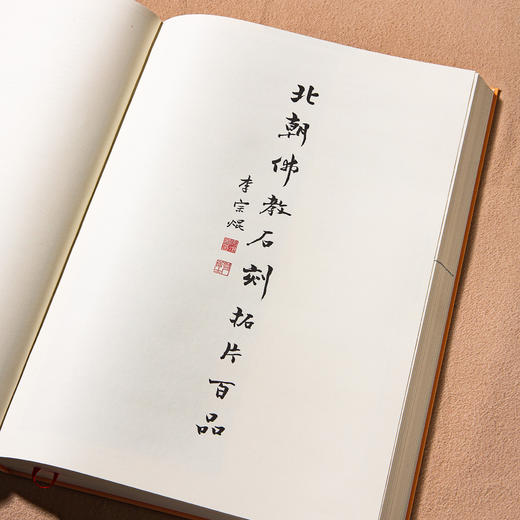 北朝佛教石刻拓片百品
李宗焜